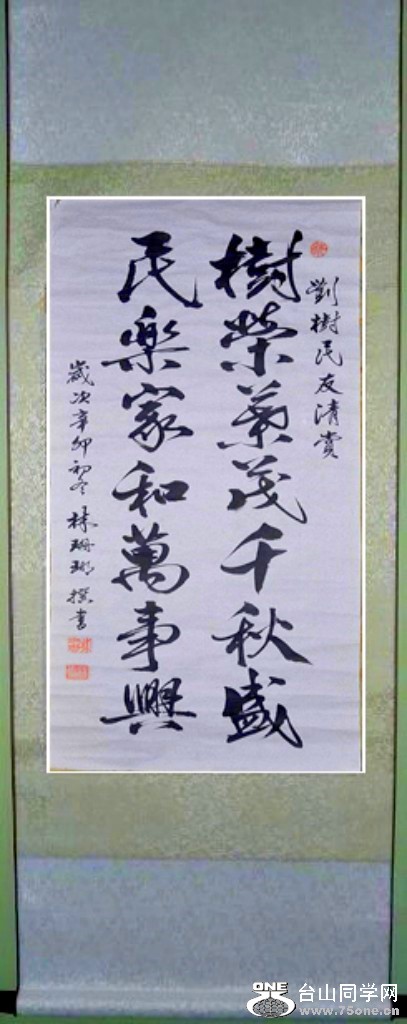 劉樹民友清賞
樹榮葉茂千秋盛
民樂家和萬事興
歲次辛卯初冬 林珊瑚撰書
ONE
台山同学网
www.75one.cn